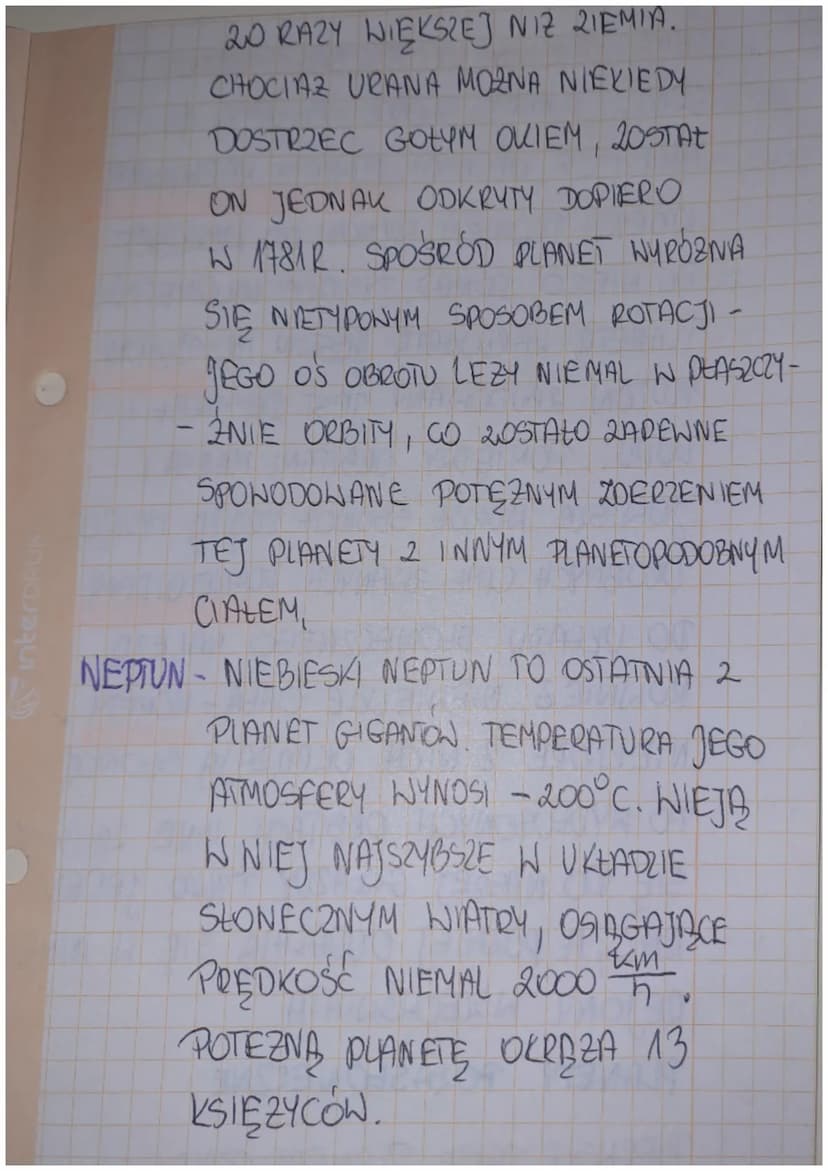 20 RAZY WIĘKSZEJ NIŻ ZIEMIA.
CHOCIAŻ URANA MOŻNA NIEKIEDY
DOSTRZEC GOŁYM OKIEM, ZOSTAŁ
ON JEDNAK ODKRYTY DOPIERO
W 1781R. SPOŚRÓD PLANET WYRÓŻNA
SIĘ NIETYPOWYM SPOSOBEM ROTACJI -
JEGO OŚ OBROTU LEŻY NIEMAL W PŁASZCZY-
- ŹNIE ORBITY, CO ZOSTAŁO ZAPEWNE
SPOWODOWANE POTĘŻNYM ZDERZENIEM
TEJ PLANETY Z INNYM PLANETOPODOBNYM
CIAŁEM,
NEPTUN - NIEBIESKI NEPTUN TO OSTATNIA Z
PLANET GIGANTÓW. TEMPERATURA JEGO
ATMOSFERY WYNOSI -200°C. WIEJĄ
W NIEJ NAJSZYBSZE W UKŁADZIE
SŁONECZNYM WIATRY, OSIĄGAJĄCE
PRĘDKOŚĆ NIEMAL 2000 km/h.
POTEŻNĄ PLANETĘ OKRĄŻA 13
KSIĘŻYCÓW.
interdruk